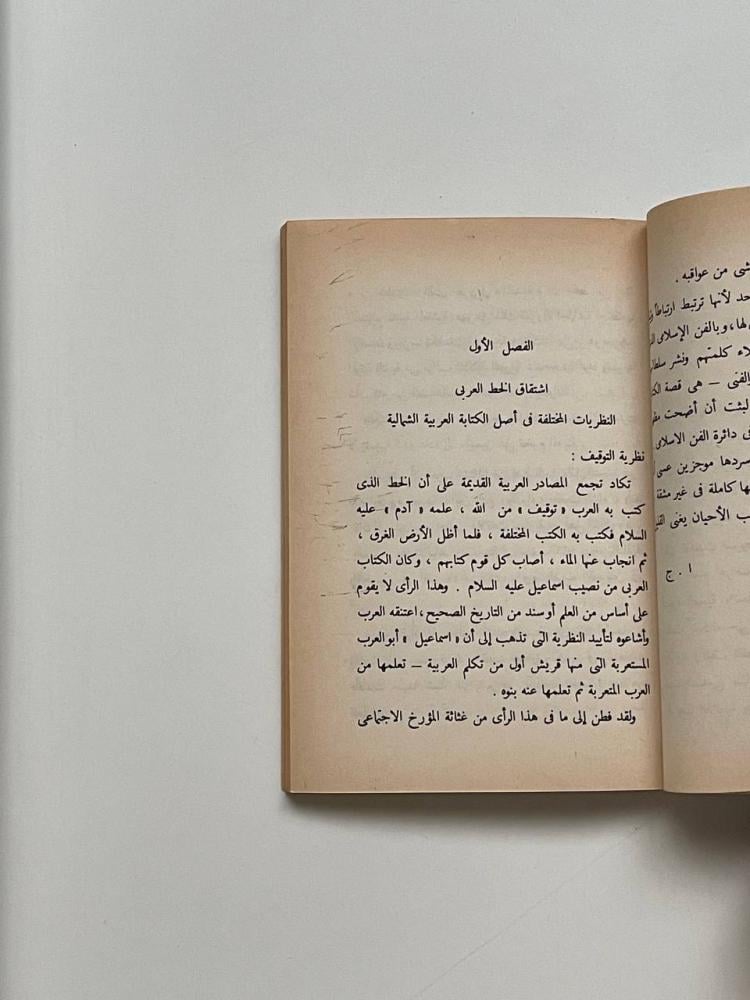 شى من عواقبه .
حد لأنها ترتبط ارتباطاً
لها ، وبالفن الإسلامى
لاء كلمتهم ونشر
والفنى — هى قصة
لبثت أن أضحت
فى دائرة الفن الاسلامى
سردها موجزين عسى
ها كاملة فى غير مشقة
ب الأحيان يغنى
ا . ج
الفصل الأول
اشتقاق الخط العربى
النظريات المختلفة فى أصل الكتابة العربية الشمالية
نظرية التوقيف :
تكاد تجمع المصادر العربية القديمة على أن الخط الذى
كتب به العرب « توقيف » من الله ، علمه « آدم » عليه
السلام فكتب به الكتب المختلفة ، فلما أظل الأرض الغرق ،
ثم انجاب عنها الماء ، أصاب كل قوم كتابهم ، وكان الكتاب
العربى من نصيب اسماعيل عليه السلام . وهذا الرأى لا يقوم
على أساس من العلم أو سند من التاريخ الصحيح ، اعتنقه العرب
وأشاعوه لتأييد النظرية التى تذهب إلى أن « اسماعيل » أبو العرب
المستعربة التى منها قريش أول من تكلم العربية — تعلمها من
العرب المتعربة ثم تعلمها عنه بنوه .
ولقد فطن إلى ما فى هذا الرأى من غثاثة المؤرخ الاجتماعى